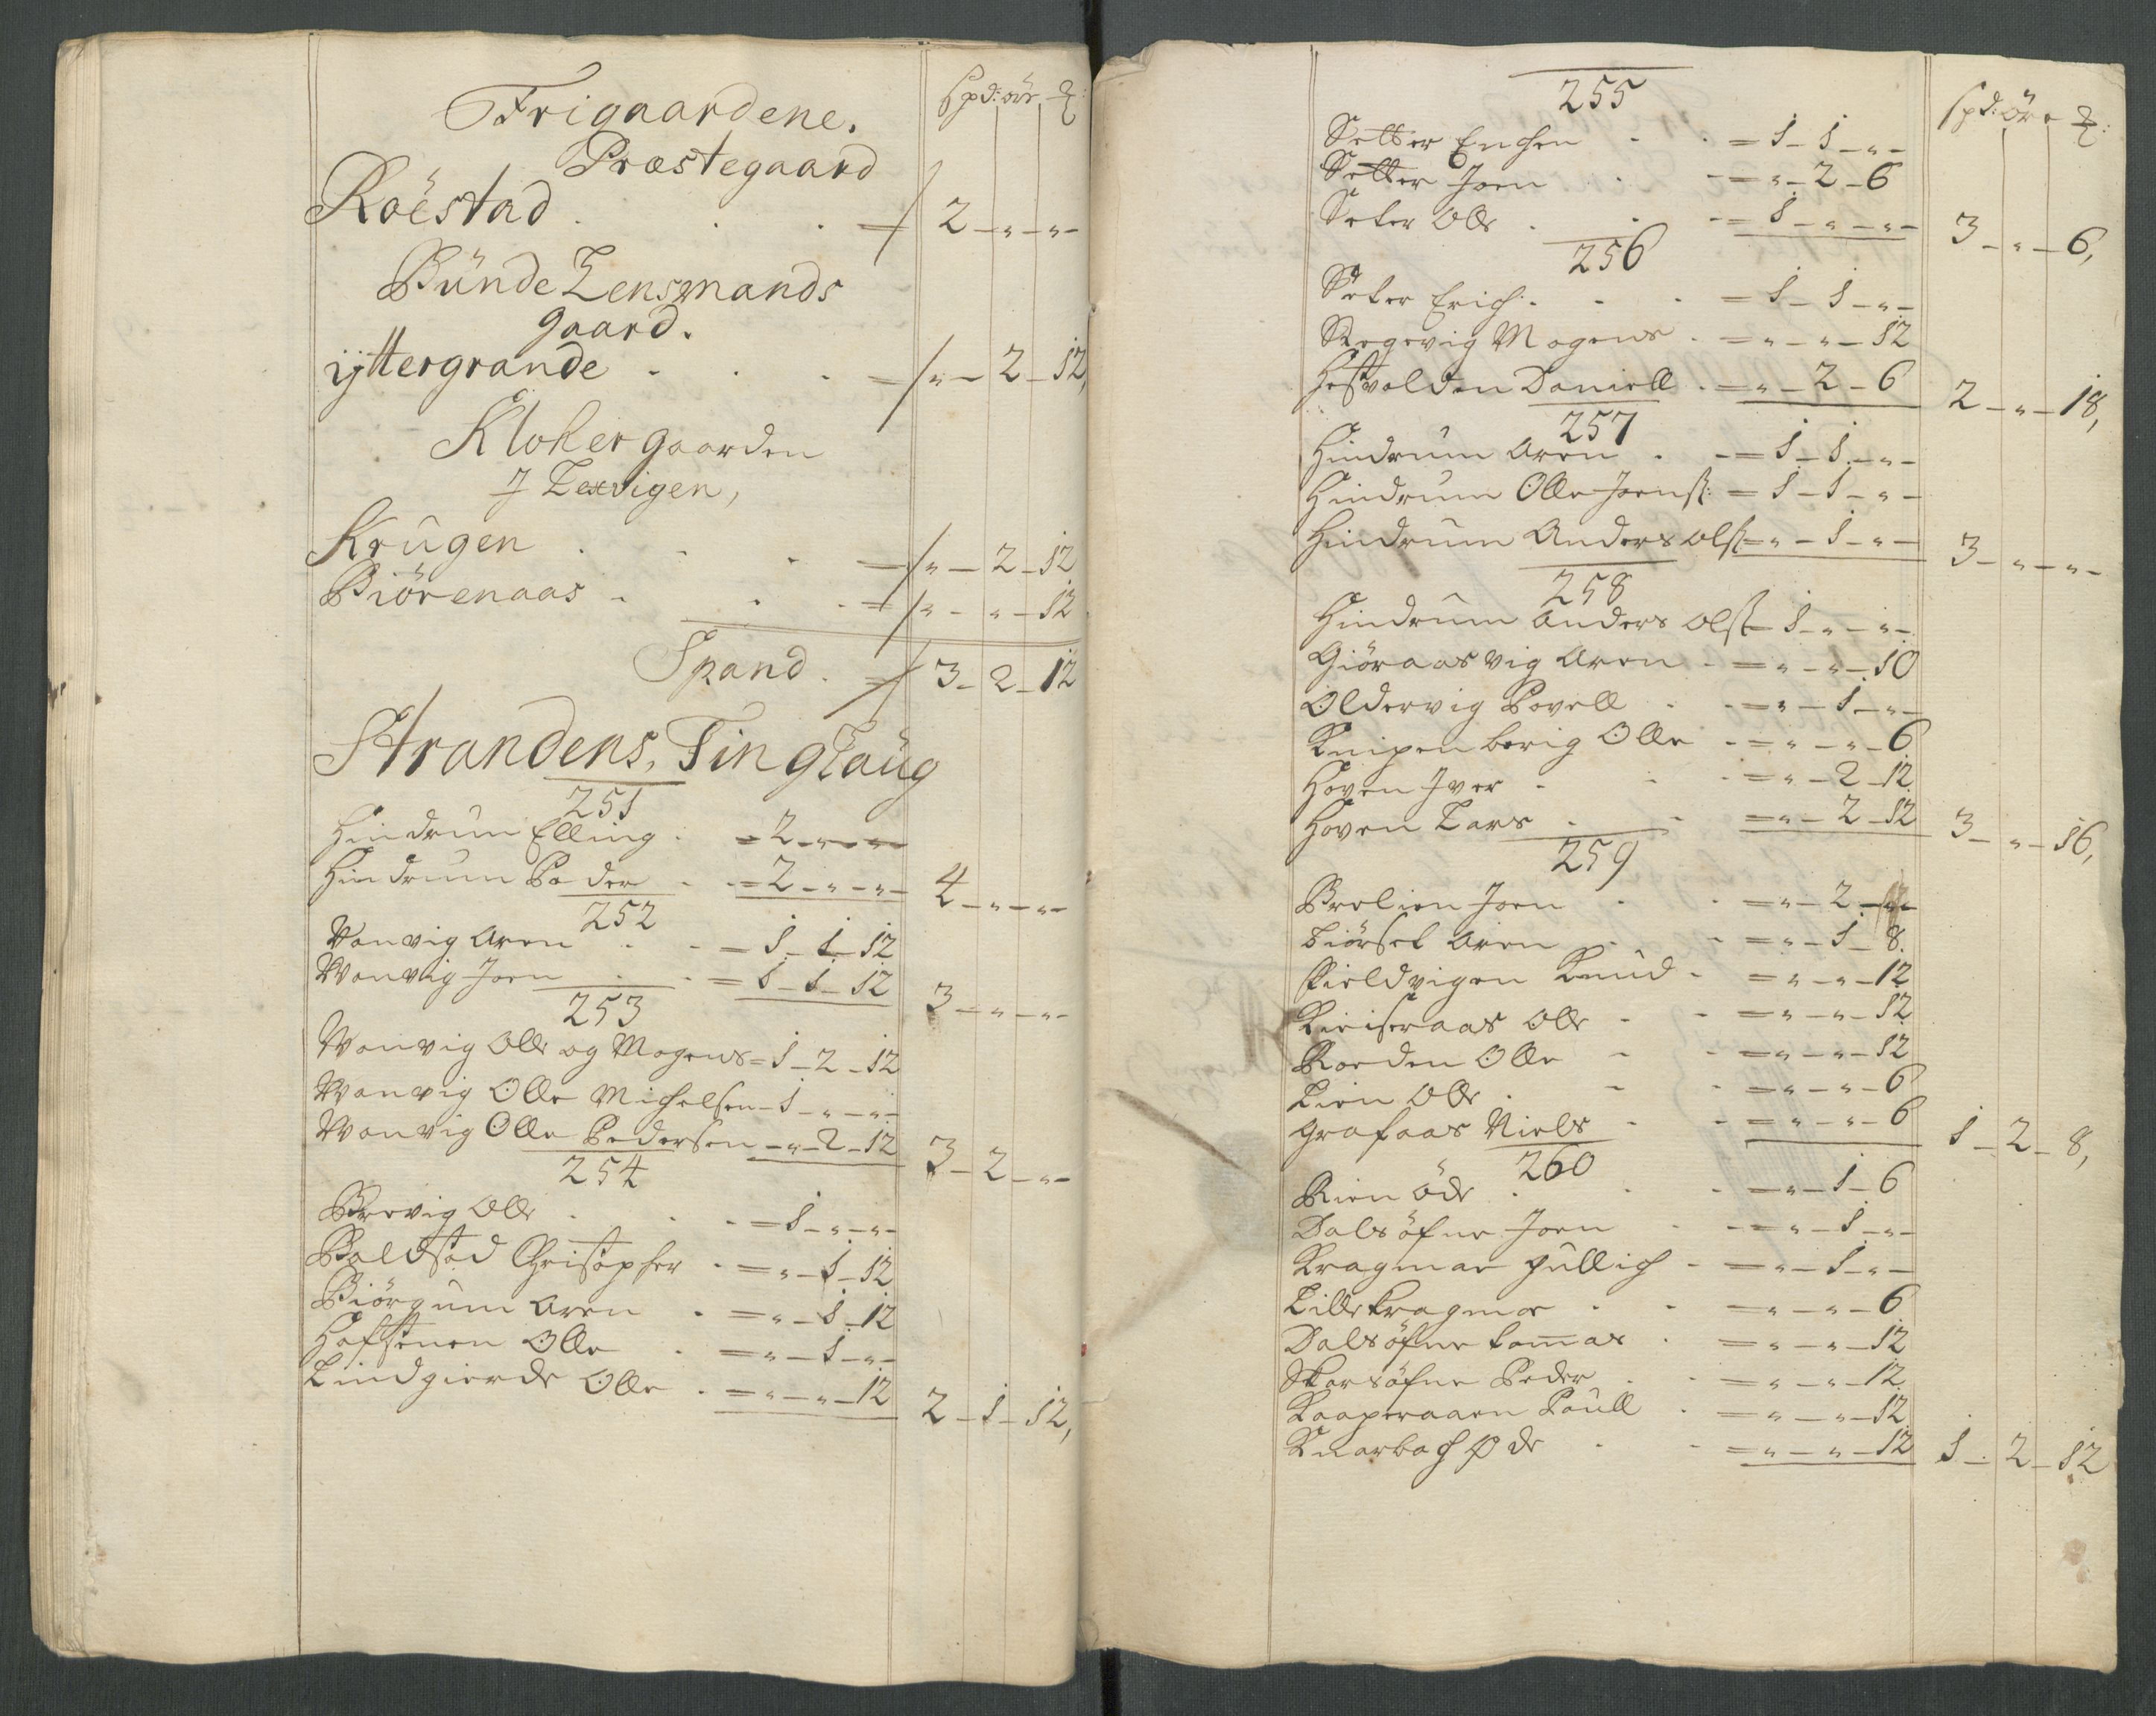 Spd: öre ꝶ:
Frigaardene.
Præstegaard
Roëstad . . . = 2 – „ – „ –
Bünde Lensmands
gaard.
ÿttergrande . . . = „ – 2 – 12,
Kloker gaarden
J Lexvigen,
Krügen . . . = „ – 2 – 12
Biörenaas . . . = „ – „ – 12
Spand . = 3 – 2 – 12
Strandens, Tinglaüg
251
Hindrum Elling . = 2 – „ – „ –
Hindrum Peder . . = 2 – „ – „ – 4 – „ – „ –
252
Vanvig Aren . . = 1 – 1 – 12
Wanvig Joen . . = 1 – 1 – 12 3 – „ – „ –
253
Wanvig Olle og Mogens = 1 – 2 – 12
Wanvig Olle Michelsen – 1 – „ – „ –
Wanvig Olle Pedersen – „ – 2 – 12 3 – 2 – „ –
254
Brevig Olle . . . = 1 – „ – „ –
Baldstad Christopher . = „ – 1 – 12
Biörgum Aren . = „ – 1 – 12
Hafstenen Olle . = „ – 1 – „ –
Lindgierde Olle . = „ – „ – 12 2 – 1 – 12,
Spd: öre ꝶ:
255
Setter Enchen . . = 1 – 1 – „ –
Setter Joen . . = „ – 2 – 6
Seter Olle . . . = 1 – „ – „ – 3 – „ – 6,
256
Seter Erich . . . = 1 – 1 – „ –
Regevig Mogens . = „ – „ – 12
Hestvolden Daniell . = „ – 2 – 6 2 – „ – 18,
257
Hindrum Aren . . = 1 – 1 – „ –
Hindrum Olle Joens: = 1 – 1 – „ –
Hindrum Anders Ols: = „ – 1 – „ – 3 – „ – „ –
258
Hindrum Anders Ols: – 1 – „ – „ –
Giöraasvig Aren . = „ – „ – 10
Oldervig Povell . . = „ – 1 – „ –
Knipenberig Olle . = „ – „ – 6
Hoven Iver . . . = „ – 2 – 12
Hoven Lars . . = „ – 2 – 12 3 – „ – 16,
259
Brelien Joen . . = „ – 2 – „ –
Biörset Aren . . = „ – 1 – 8.
Fieldvigen Knud . = „ – „ – 12
Kieiseraas Olle . . = „ – „ – 12
Raeden Olle . . = „ – „ – 12
Lien Olle . . . = „ – „ – 6
Grafaas Niels . . = „ – „ – 6 1 – 2 – 8,
260
Rien öde . . . = „ – 1 – 6
Dalsöfne Joen . . = „ – 1 – „ –
Kragmoe Gullich . = „ – 1 – „ –
Lille Kragmoe . . = „ – „ – 6
Dalsöfne Tom̄as . = „ – „ – 12
Skarsöfne Peder . . = „ – „ – 12
Kaaperaaen Poüll . = „ – „ – 12
Knarbach øde . . = „ – „ – 12 1 – 2 – 12